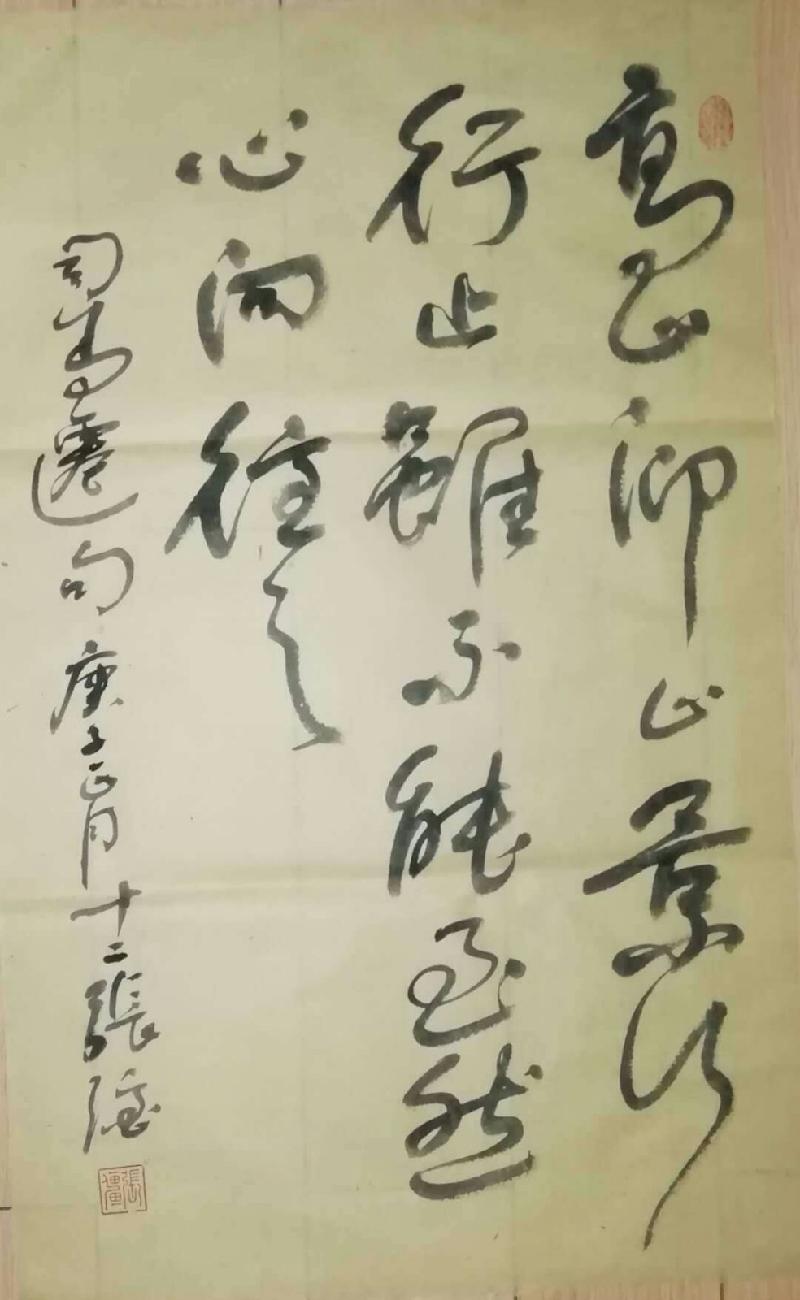 高山仰止景行
行止雖不能至然
心向往之
司馬遷句庚子正月十二張